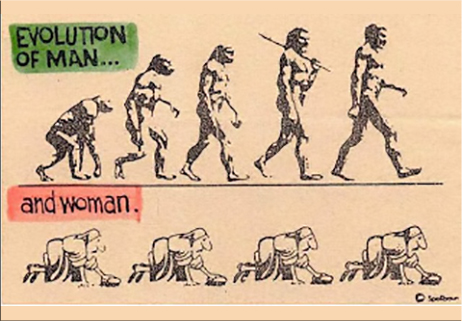 EVOLUTION
OF MAN...
and woman.
©